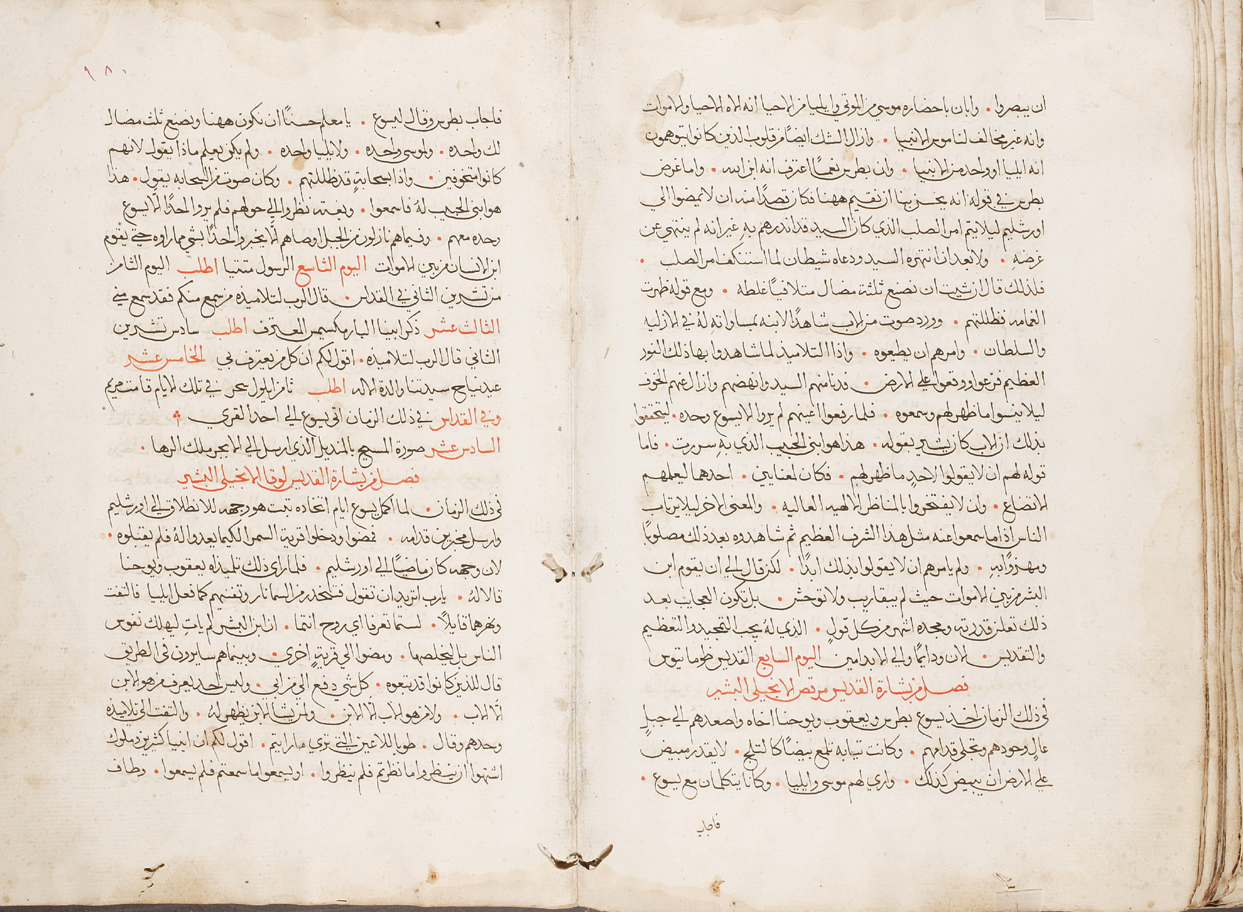 ان يبصروا. وابان باحضاره موسى من الموتى وايليا من الاحيا انه اله الاحيا والاموات
وانه غير مخالف لناموس الانبيا. وازال الشك ايضًا من قلوب الذين كانوا يتوهمون
انه ايليا او واحد من الانبيا. وان بطرس نعمًا اعترف انه ابن الله. واما غرض
بطرس في قوله انه يحسن بنا ان نقيم ههنا فكان قصدًا منه ان لا يمضوا الى
اورشليم ليلا يتم امر الصلب الذي كان السيد قد انذرهم به غير انه لم ينتهي عن
غرضه. ولا بعد ان انتهره السيد ودعاه شيطان لما استنكف من الصلب.
فلذلك قال ان شيت ان نصنع ثلثة مضال متلافيًا غلطه. ومع قوله ظهرت
الغمامه فظللتهم. وورد صوت من الاب شاهدًا لابنه بمساواته له في الازليه
والسلطان. وامرهم ان يطيعوه. واذا التلاميذ لما شاهدوا بهاذلك النور
العظيم فزعوا ووقعوا على الارض. فدنا منهم السيد وانهضهم وازال عنهم الخوف
ليلا ينسوا ما ظهر لهم وسمعوه. فلما رفعوا اعينهم لم يروا الا يسوع وحده. ليتحققوا
بذلك ان الاب كان يشير بقوله. هذا هو ابني الحبيب الذي به سررت. فاما
قوله لهم ان لا يقولوا لاحد ما ظهر لهم. فكان لمعنايين. احدهما ليعلمهم
الاتضاع. وان لا يفتخروا بالمناظر الالهيه العاليه. والمعنى الاخر ليلا يرتاب
الناس اذا ما سمعوا عنه مثل هذا الشرف العظيم ثم شاهدوه بعد ذلك مصلوبًا
ومهزوًا به. ولم يامرهم ان لا يقولوا بذلك ابدًا. لكن قال الى ان يقوم ابن
البشر من بين الاموات حيث لم يبقا ريب ولا توحش. بل تكون العجايب بعد
ذلك تعلن قدرته ومجده اشهر من كل قول. الذي له يجب التمجيد والتعظيم
والتقديس. الان ودايمًا والى الابد امين اليوم السابع القديس ظوماتيوس
فصل من بشارة القديس مرقص الانجيلى البشير
في ذلك الزمان اخذ يسوع بطرس ويعقوب ويوحنا اخاه واصعدهم الى جبلٍ
عالٍ وحدهم وتجلى قدامهم. وكانت ثيابه تلمع بيضًا كالثلج. لا يقدر مبيض
على الارض ان يبيض كذلك. وارى لهم موسى وايليا. وكانا يتكلمان مع يسوع.
فاجاب
١٨٠
فاجاب بطرس وقال ليسوع. يا معلم حسنًا ان نكون ههنا ونصنع ثلث مضال
لك واحده. ولموسى واحده. ولايليا واحده. ولم يكن يعلم ماذا يقول لانهم
كانوا متخوفين. واذا سحابةٍ قد ظللتهم. وكان صوت من السحابه يقول. هذا
هو ابني الحبيب له فاسمعوا. وبغته نظروا الى حولهم فلم يروا احدًا الا يسوع
وحده معهم. وفيما هم نازلون من الجبل اوصاهم الا يخبروا احدًا بشي مما راوه حتى يقوم
ابن الانسان من بين الاموات اليوم التاسع الرسول متتيا اطلب اليوم الثامن
من تشرين الثاني في القداس. قال الرب لتلاميذه من سمع منكم فقد سمع مني
الثالث عشر ذكر ابينا البار مكسمس المعترف اطلب سادس تشرين
الثاني قال الرب لتلاميذه. اقول لكم ان كل من يعترف بي الخامس عشر
عيد نياح سيدتنا والدة الاله اطلب ثامن ايلول سحر في تلك الايام قامت مريم
وفي القداس في ذلك الزمان اتى يسوع الى احدا القرى
السادس عشر صورة المسيح بالمنديل الذي ارسل الى الابجر ملك الرها.
فصل من بشارة القديس لوقا الانجيلى البشير
في ذلك الزمان. لما اكمل يسوع ايام اتخاذه ثبت هو وجهه للانطلاق الى اورشليم
وارسل مخبرين قدامه. فمضوا ودخلوا قرية السمرا لكيما يعدوا له فلم يقبلوه.
لان وجهه كان ماضيًا الى اورشليم. فلما راى ذلك تلميذاه يعقوب ويوحنا
قالا له. يا رب اتريد ان نقول فتنحدر من السما نار وتفنيهم كما فعل ايليا فالتفت
ونهرهما قايلًا. لستما تعرفا اي روح انتما. ان ابن البشر لم يات ليهلك نفوس
الناس بل ليخلصها. ومضوا الى قريةٍ اخرى. وبينما هم سايرون في الطريق
قال للذين كانوا قد تبعوه. كل شي دفع الى من ابي. وليس احد يعرف من هو الابن
الا الاب. ولا من هو الاب الا الابن. ولمن يشا الابن يظهر له. والتفت الى تلاميذه
وحدهم وقال. طوبا للاعين التي ترى ما رايتم. اقول لكم ان انبيا كثيرين وملوك
اشتهوا ان ينظروا ما نظرتم فلم ينظروا. او يسمعوا ما سمعتم فلم يسمعوا.